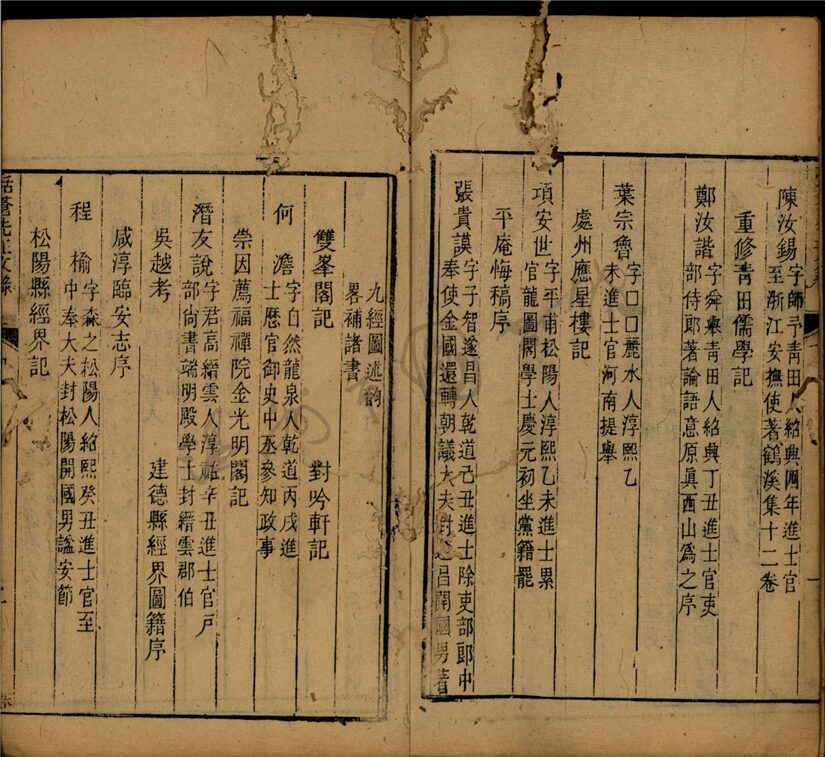 陳汝錫字師予青田人紹興四年進士官
至浙江安撫使著鶴溪集十二卷
重修青田儒學記
鄭汝諧字舜舉青田人紹興丁丑進士官吏
部侍郎著論語意原眞西山爲之序
葉宗魯字口口麗水人淳熙乙
未進士官河南提舉
處州應星樓記
項安世字平甫松陽人淳熙乙未進士累
官龍圖閣學士慶元初坐黨籍罷
平庵悔稿序
張貴謨字子智遂昌人乾道己丑進士除吏部郎中
奉使金國還轉朝議大夫封遂昌開國男著
九經圖述韵
畧補諸書
雙峯閣記 對吟軒記
何澹字自然龍泉人乾道丙戌進
士歷官御史中丞參知政事
崇因薦福禪院金光明閣記
潛友說字君高縉雲人淳祐辛丑進士官戶
部尚書端明殿學士封縉雲郡伯
吳越考 建德縣經界圖籍序
咸淳臨安志序
程榆字森之松陽人紹熙癸丑進士官至
中奉大夫封松陽開國男諡安節
松陽縣經界記
括蒼先正文錄